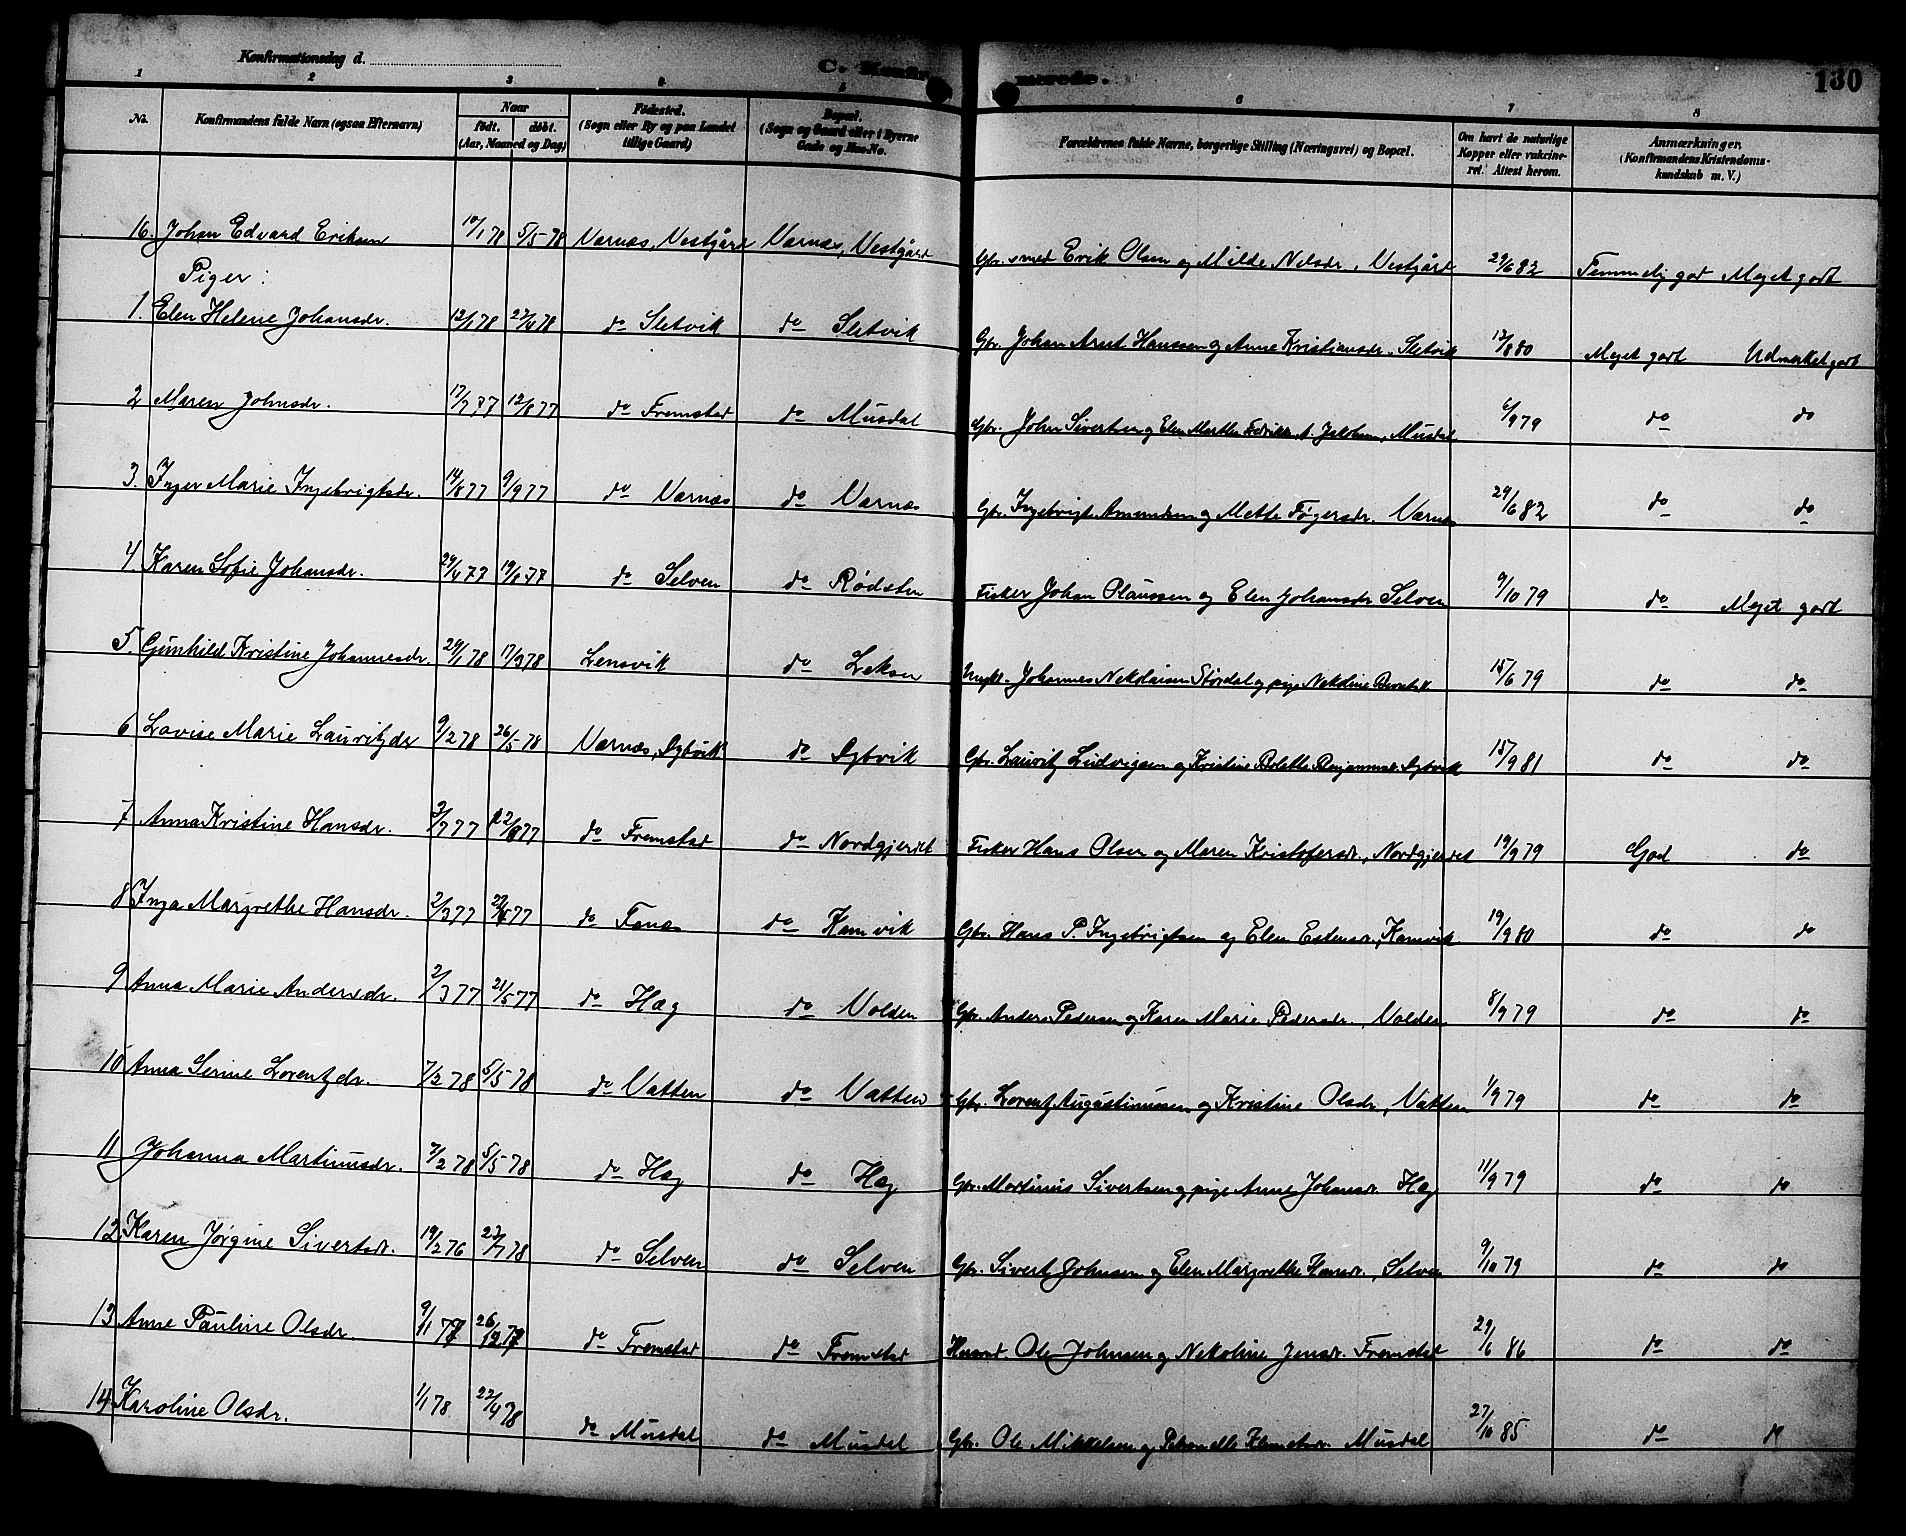 Konfirmationsdag d.
C. Konfirmerede.
130
1 2 3 4 5 6 7 8
No. Konfirmandens fulde Navn (ogsaa Efternavn) Naar født. døbt. (Aar, Maaned og Dag) Fødested. (Sogn eller By og paa Landet tillige Gaard) Bopæl. (Sogn og Gaard eller i Byerne Gade og Hus-No. Forældrenes fulde Navne, borgerlige Stilling (Næringsvei) og Bopæl. Om havt de naturlige Kopper eller vakcineret. Attest herom. Anmærkninger, (Konfirmandens Kristendomskundskab m. V.)
16. Johan Edvard Eriksen 10/1 78 5/5 78 Værnæs, Vestgård Værnæs, Vestgård Gbr. smed Erik Olsen og Milde Nilsdr., Vestgård 29/6 82 Temmelig god Meget godt
Piger:
1. Elen Helene Johansdr. 12/1 78 27/4 78 do Sletvik do Sletvik Gbr. Johan Arnt Hanssen og Anne Kristiansdr. Sletvik 13/8 80 Meget godt Udmerket godt
2 Maren Johnsdr. 17/7 77 12/8 77 do Fremstad do Musdal Gbr. John Sivertsen og Elen Marthe Fredrikke A. Jakobsen, Musdal 6/9 79 do do
3. Inger Marie Ingebrigtsdr. 14/8 77 9/9 77 do Værnæs do Værnæs Gbr. Ingebrigt Amundsen og Mette Tøgersdr. Værnes 29/6 82 do do
4. Karen Sofie Johansdr. 24/4 77 19/6 77 do Selven do Rødsten Fisker Johan Olaussen og Elen Johansdr Selven 9/10 79 do Meget godt
5. Gunhild Kristine Johannesdr. 24/1 78 17/3 78 Lensvik do Leksen Ungkl. Johannes Nekolaisen Størdal og pige Nekoline 15/6 79 do do
6 Lovise Marie Lauritzdr 9/2 78 26/5 78 Værnæs, Lybvik do Lybvik Gbr. Lauritz Ludvigsen og Kristine Bolette Benjaminsdr. Lybvik 15/9 81 do do
7 Anna Kristine Hansdr. 3/7 77 12/8 77 do Fremstad do Nordgjerdet Fisker Hans Olsen og Maren Kristofersdr., Nordgjerdet 19/9 79 God do
8 Inga Margrethe Hansdr. 2/3 77 21/5 77 do Fanæs do Kamvik Gbr. Hans P. Ingebrigtsen og Elen Estensdr., Kamvik 19/9 80 do do
9 Anna Marie Andersdr. 2/3 77 21/5 77 do Hæg do Volden Gbr. Anders Pedersen og Karen Marie Pedersdr., Volden 8/9 79 do do
10 Anna Serine Lorentzdr. 7/2 78 5/5 78 do Vatten do Vatten Gbr. Lorentz Augustinussen og Kristine Olsdr, Vatten 1/9 79 do do
11 Johanna Martinusdr. 7/2 78 5/5 78 do Hæg do Hæg Gbr. Martinus Sivertsen og pige Anne Johansdr. Hæg 11/9 79 do do
12 Karen Jørgine Sivertsdr. 19/2 76 23/7 78 do Selven do Selven Gbr. Sivert Johnsen og Elen Margrethe Hansdr., Selven 9/10 79 do do
13 Anne Pauline Olsdr. 9/11 77 26/12 77 do Fremstad do Fremstad Husmd. Ole Johnsen og Nekoline Jensdr. Fremstad 29/6 86 do do
14 Karoline Olsdr. 1/1 78 22/4 78 do Musdal do Musdal Gbr. Ole Mikkelsen og Petronelle Klemetsdr. Musdal 27/10 85 do do